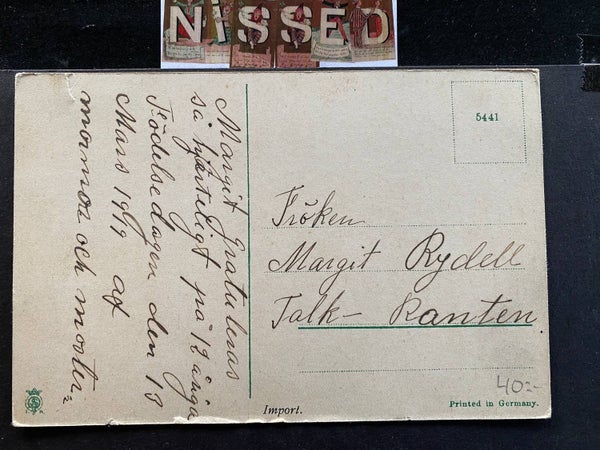 NiSSED
Margit Gratuleras
så hjärteligt på 12 åriga
Födelsedagen den 13
Mars 1919 af
mormor och moster
5441
Fröken
Margit Rydell
Talk- Kanten
40:-
Import.
Printed in Germany.